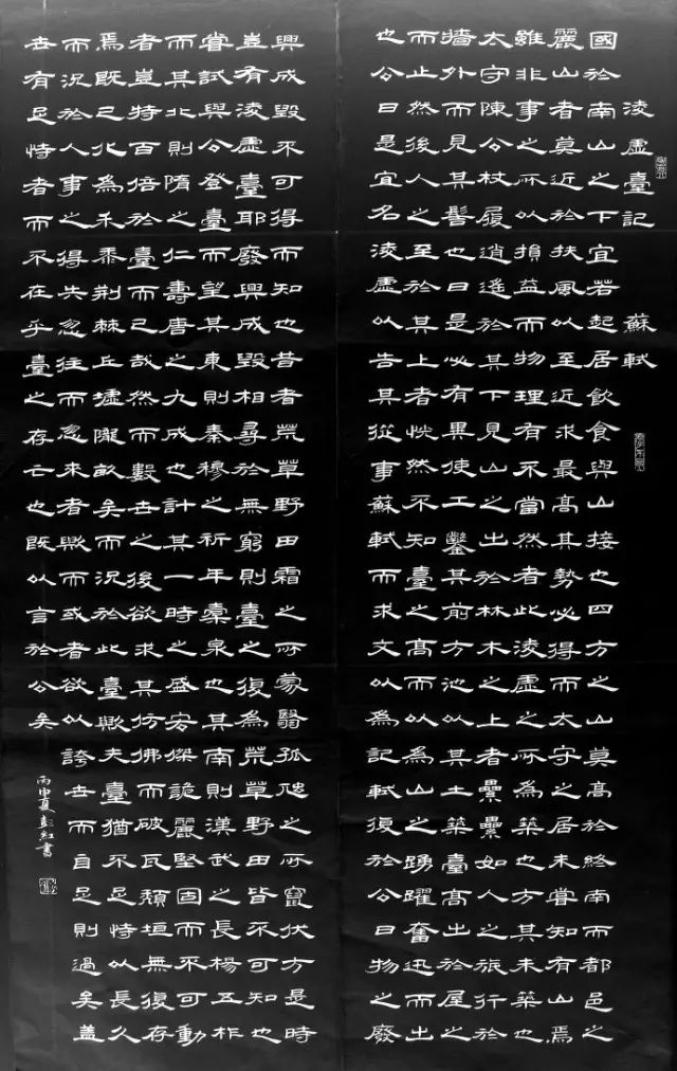 淩虛臺記 蘇軾
國於南山之下宜若起居飲食與山接也四方之山莫高於終南而都邑之
麗山者莫近於扶風以至近求最高其勢必得而太守之居未嘗知有山焉
雖非事之所以損益而物理有不當然者此淩虛之所為築也方其未築也
太守陳公杖履逍遙於其下見山之出於林木之上者纍纍如人之旅行於
墻外而見其髻也曰是必有異使工鑿其前方池以其土築臺高出於屋之
而止然後人之至於其上者怳然不知臺之高而以為山之踴躍奮迅而出
也公曰是宜名淩虛以告其從事蘇軾而求文以為記軾復於公曰物之廢
興成毀不可得而知也昔者荒草野田霜之所蒙翳孤虺之所竄伏方是時
豈有淩虛臺耶廢興成毀相尋於無窮則臺之復為荒草野田皆不可知也
嘗試與公登臺而望其東則秦穆之祈年橐泉也其南則漢武之長楊五柞
而其北則隋之仁壽唐之九成也計其一時之盛宏傑詭麗堅固而不可動
者豈特百倍於臺而已哉然而數世之後欲求其彷彿而破瓦頹垣無復存
焉既已化為禾黍荊棘丘墟隴畝矣而況於此臺歟夫臺猶不足恃以長久
而況於人事之得失忽往而忽來者歟而或者欲以誇世而自足則過矣蓋
世有足恃者而不在乎臺之存亡也既以言於公矣
丙申夏彭红書